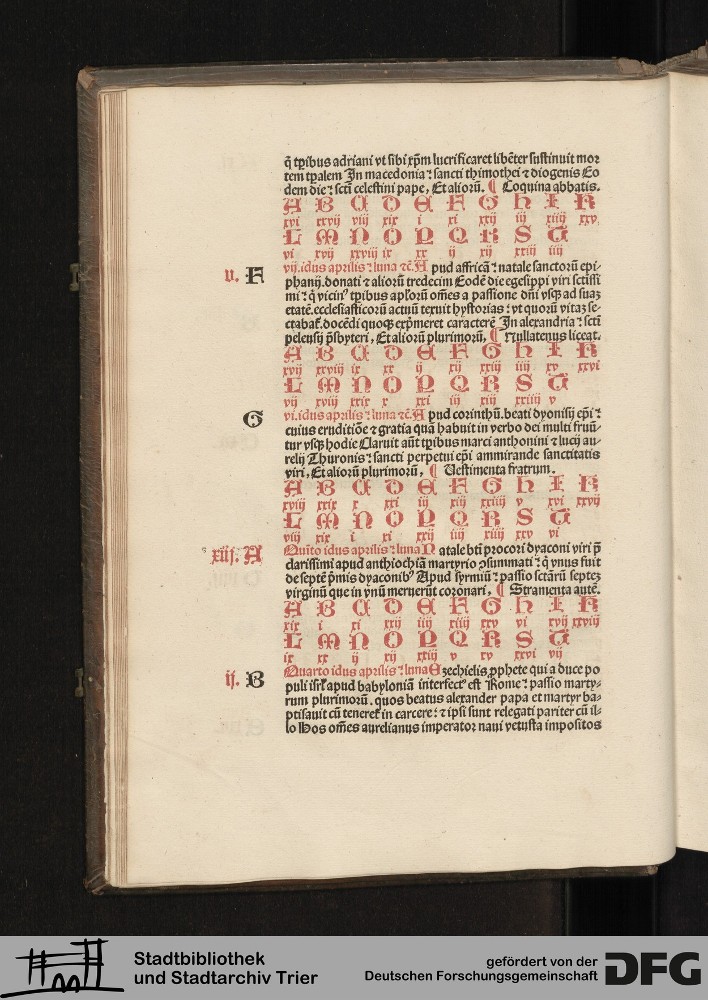 q̄ tꝑibus adriani vt sibi xp̄m lucrificaret libēter sustinuit mor
tem tꝑalem In macedonia ⁊ sancti thimothei ⁊ diogenis Eo
dem die ⁊ sctī celestini pape, Et aliorū. ¶ Coquina abbatis.
A B C D E F G H I K
xvi xxvij viij xix i xi xxij iij xiiij xxv
L M N O P Q R S T
vi xvij xxviij ix xx ij xij xxiij iiij
v. F vij. idus aprilis ⁊ luna ⁊c̄. A pud affricā ⁊ natale sanctorū epi-
phanij. donati ⁊ aliorū tredecim Eodē die egesippi viri sctissi
mi ⁊ q̄ vicinꝰ tꝑibus apl'orū om̄es a passione dn̄i vsq̨ ad suaꝫ
etatē. ecclesiasticorū actuū texuit hystorias ⁊ vt quorū vitaꝫ se-
ctabat̄. docēdi quoq̨ exp̄meret caracterē In alexandria ⁊ sctī
peleusij p̄sbyteri, Et aliorū plurimorū, ¶ Nullatenus liceat.
A B C D E F G H I K
xvij xxviij ix xx i xij xxiij iiij xv xxvi
L M N O P Q R S T
vij xviij xxix x xxi iij xiij xxiiij v
G vi. idus aprilis ⁊ luna ⁊c̄. A pud corinthū. beati dyonisij ep̄i ⁊
cuius eruditiōe ⁊ gratia quā habuit in verbo dei multi fruū-
tur vsq̨ hodie Claruit aūt tꝑibus marci anthonini ⁊ lucij au-
relij Thuronis ⁊ sancti perpetui ep̄i ammirande sanctitatis
viri, Et aliorū plurimorū, ¶ Uestimenta fratrum.
A B C D E F G H I K
xviij xxix x xxi iij xiij xxiiij v xvi xxvij
L M N O P Q R S T
viij xix i xi xxij iiij xiiij xxv vi
xiij. A Quīto idus aprilis ⁊ luna N atale bt̄i procori dyaconi viri p̄
clarissimi apud anthiochiā martyrio ↄsummati ⁊ q̄ vnus fuit
de septē p̄mis dyaconibꝰ Apud syrmiū ⁊ passio sctārū septeꝫ
virginū que in vnū meruerūt coronari, ¶ Stramenta autē.
A B C D E F G H I K
xix i xi xxij iiij xiiij xxv vi xvij xxviij
L M N O P Q R S T
ix xx ij xij xxiij v xv xxvi vij
ij. B Quarto idus aprilis ⁊ luna E zechielis ꝓphete qui a duce po
puli isrl' apud babyloniā interfectꝰ est Rome ⁊ passio marty-
rum plurimorū. quos beatus alexander papa et martyr ba-
ptisauit cū teneret̄ in carcere ⁊ ⁊ ipsi sunt relegati pariter cū il-
lo Hos om̄es aurelianus imperator naui vetusta impositos
Stadtbibliothek
und Stadtarchiv Trier
gefördert von der
Deutschen Forschungsgemeinschaft
DFG